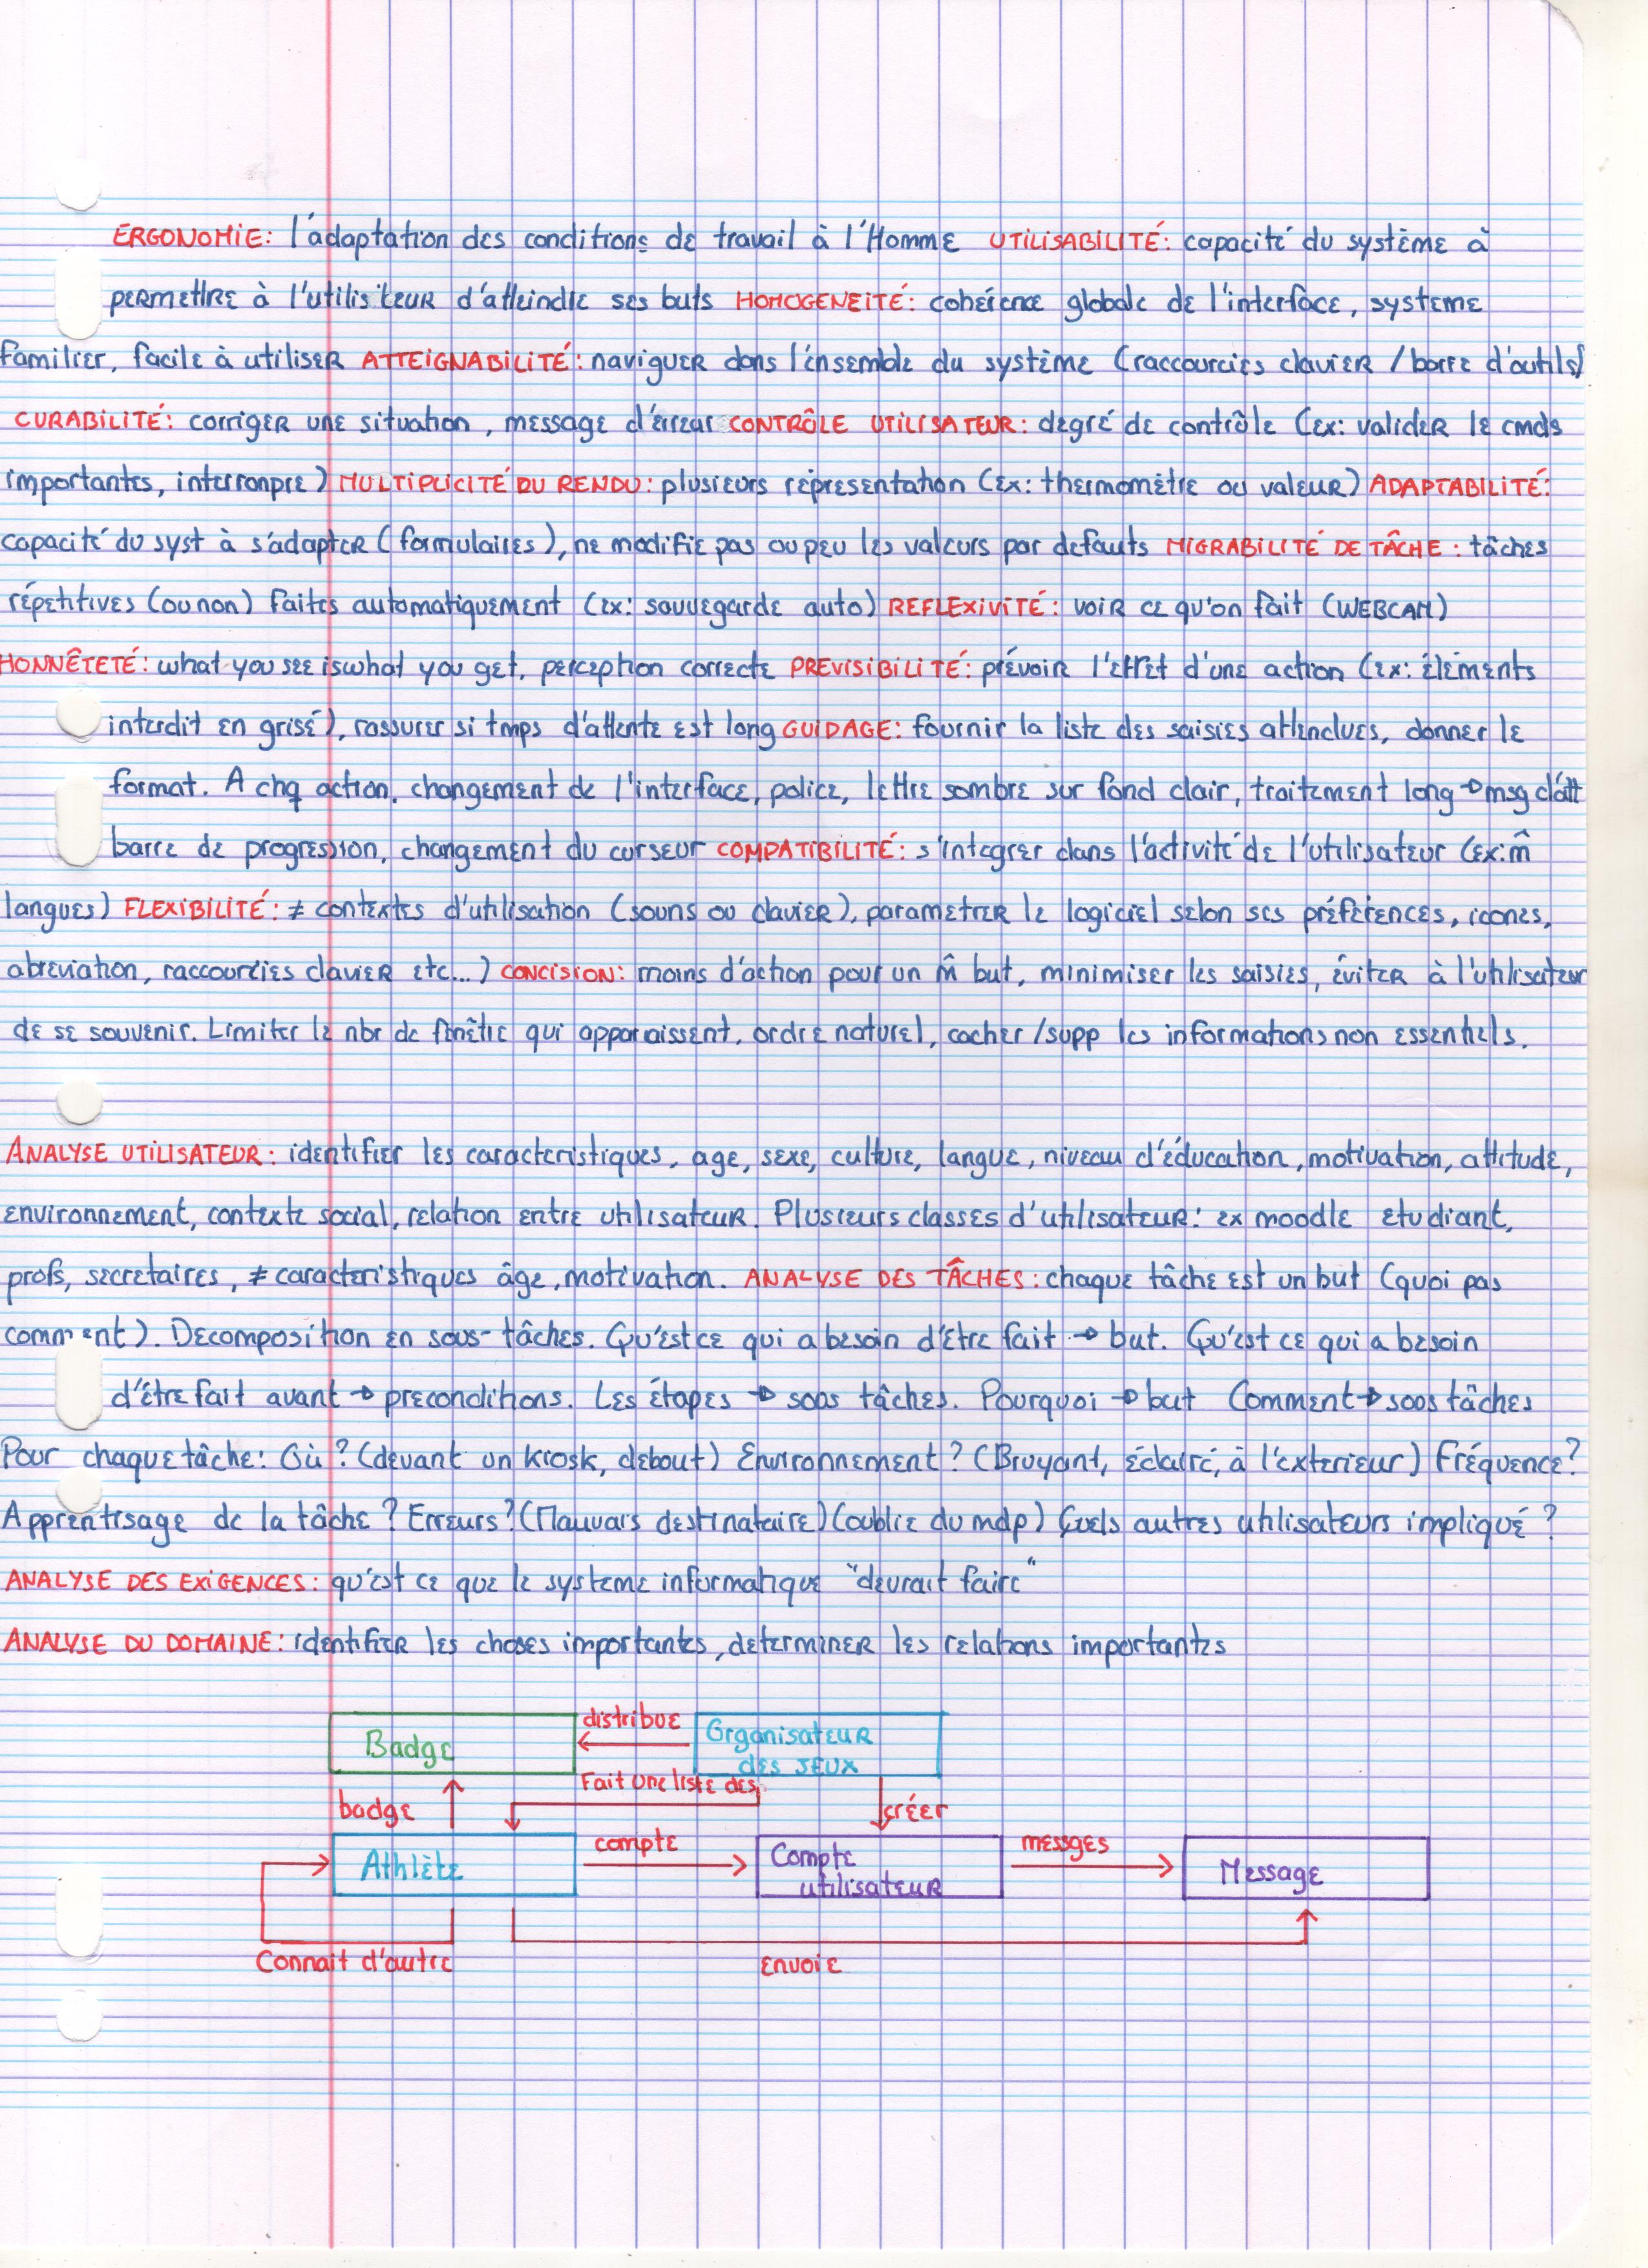 ERGONOMIE: l'adaptation des conditions de travail à l'Homme UTILISABILITÉ: capacité du système à
permettre à l'utilisateur d'atteindre ses buts HOMOGENEITÉ: cohérence globale de l'interface, systeme
familier, facile à utiliser ATTEIGNABILITÉ: naviguer dans l'ensemble du système (raccourcies clavier / barre d'outils)
CURABILITÉ: corriger une situation, message d'erreur CONTRÔLE UTILISATEUR: degré de contrôle (ex: valider le cmds
importantes, interronpre) MULTIPLICITÉ DU RENDU: plusieurs réprésentation (ex: thermomètre ou valeur) ADAPTABILITÉ:
capacité du syst à s'adapter (formulaires), ne modifie pas ou peu les valeurs par defauts MIGRABILITÉ DE TÂCHE: tâches
répétitives (ou non) faites automatiquement (ex: sauvegarde auto) REFLEXIVITÉ: voir ce qu'on fait (WEBCAM)
HONNÊTETÉ: what you see is what you get, perception correcte PREVISIBILITÉ: prévoir l'effet d'une action (ex: éléments
interdit en grisé), rassurer si tmps d'attente est long GUIDAGE: fournir la liste des saisies attendues, donner le
format. A chq action, changement de l'interface, police, lettre sombre sur fond clair, traitement long → msg d'att
barre de progression, changement du curseur COMPATIBILITÉ: s'integrer dans l'activité de l'utilisateur (ex: m̂
langues) FLEXIBILITÉ: ≠ contextes d'utilisation (souris ou clavier), parametrer le logiciel selon ses préférences, icones,
abreviation, raccourcies clavier etc...) CONCISION: moins d'action pour un m̂ but, minimiser les saisies, éviter à l'utilisateur
de se souvenir. Limiter le nbr de fenêtre qui apparaissent, ordre naturel, cacher /supp les informations non essentiels.
ANALYSE UTILISATEUR: identifier les caracteristiques, age, sexe, culture, langue, niveau d'éducation, motivation, attitude,
environnement, contexte social, relation entre utilisateur. Plusieurs classes d'utilisateur: ex moodle etudiant,
profs, secretaires, ≠ caracteristiques âge, motivation. ANALYSE DES TÂCHES: chaque tâche est un but (quoi pas
comment). Decomposition en sous-tâches. Qu'est ce qui a besoin d'être fait → but. Qu'est ce qui a besoin
d'être fait avant → preconditions. Les étapes → sous tâches. Pourquoi → but Comment → sous tâches
Pour chaque tâche: Où? (devant un kiosk, debout) Environnement? (Bruyant, éclairé, à l'exterieur) Fréquence?
Apprentisage de la tâche? Erreurs? (Mauvais destinataire) (oublie du mdp) Quels autres utilisateurs impliqué?
ANALYSE DES EXIGENCES: qu'est ce que le systeme informatique "devrait faire"
ANALYSE DU DOMAINE: identifier les choses importantes, determiner les relations importantes
Badge distribue Organisateur
des JEUX
Fait une liste des
badge créer
Athlète compte Compte
utilisateur messges Message
Connait d'autre envoie